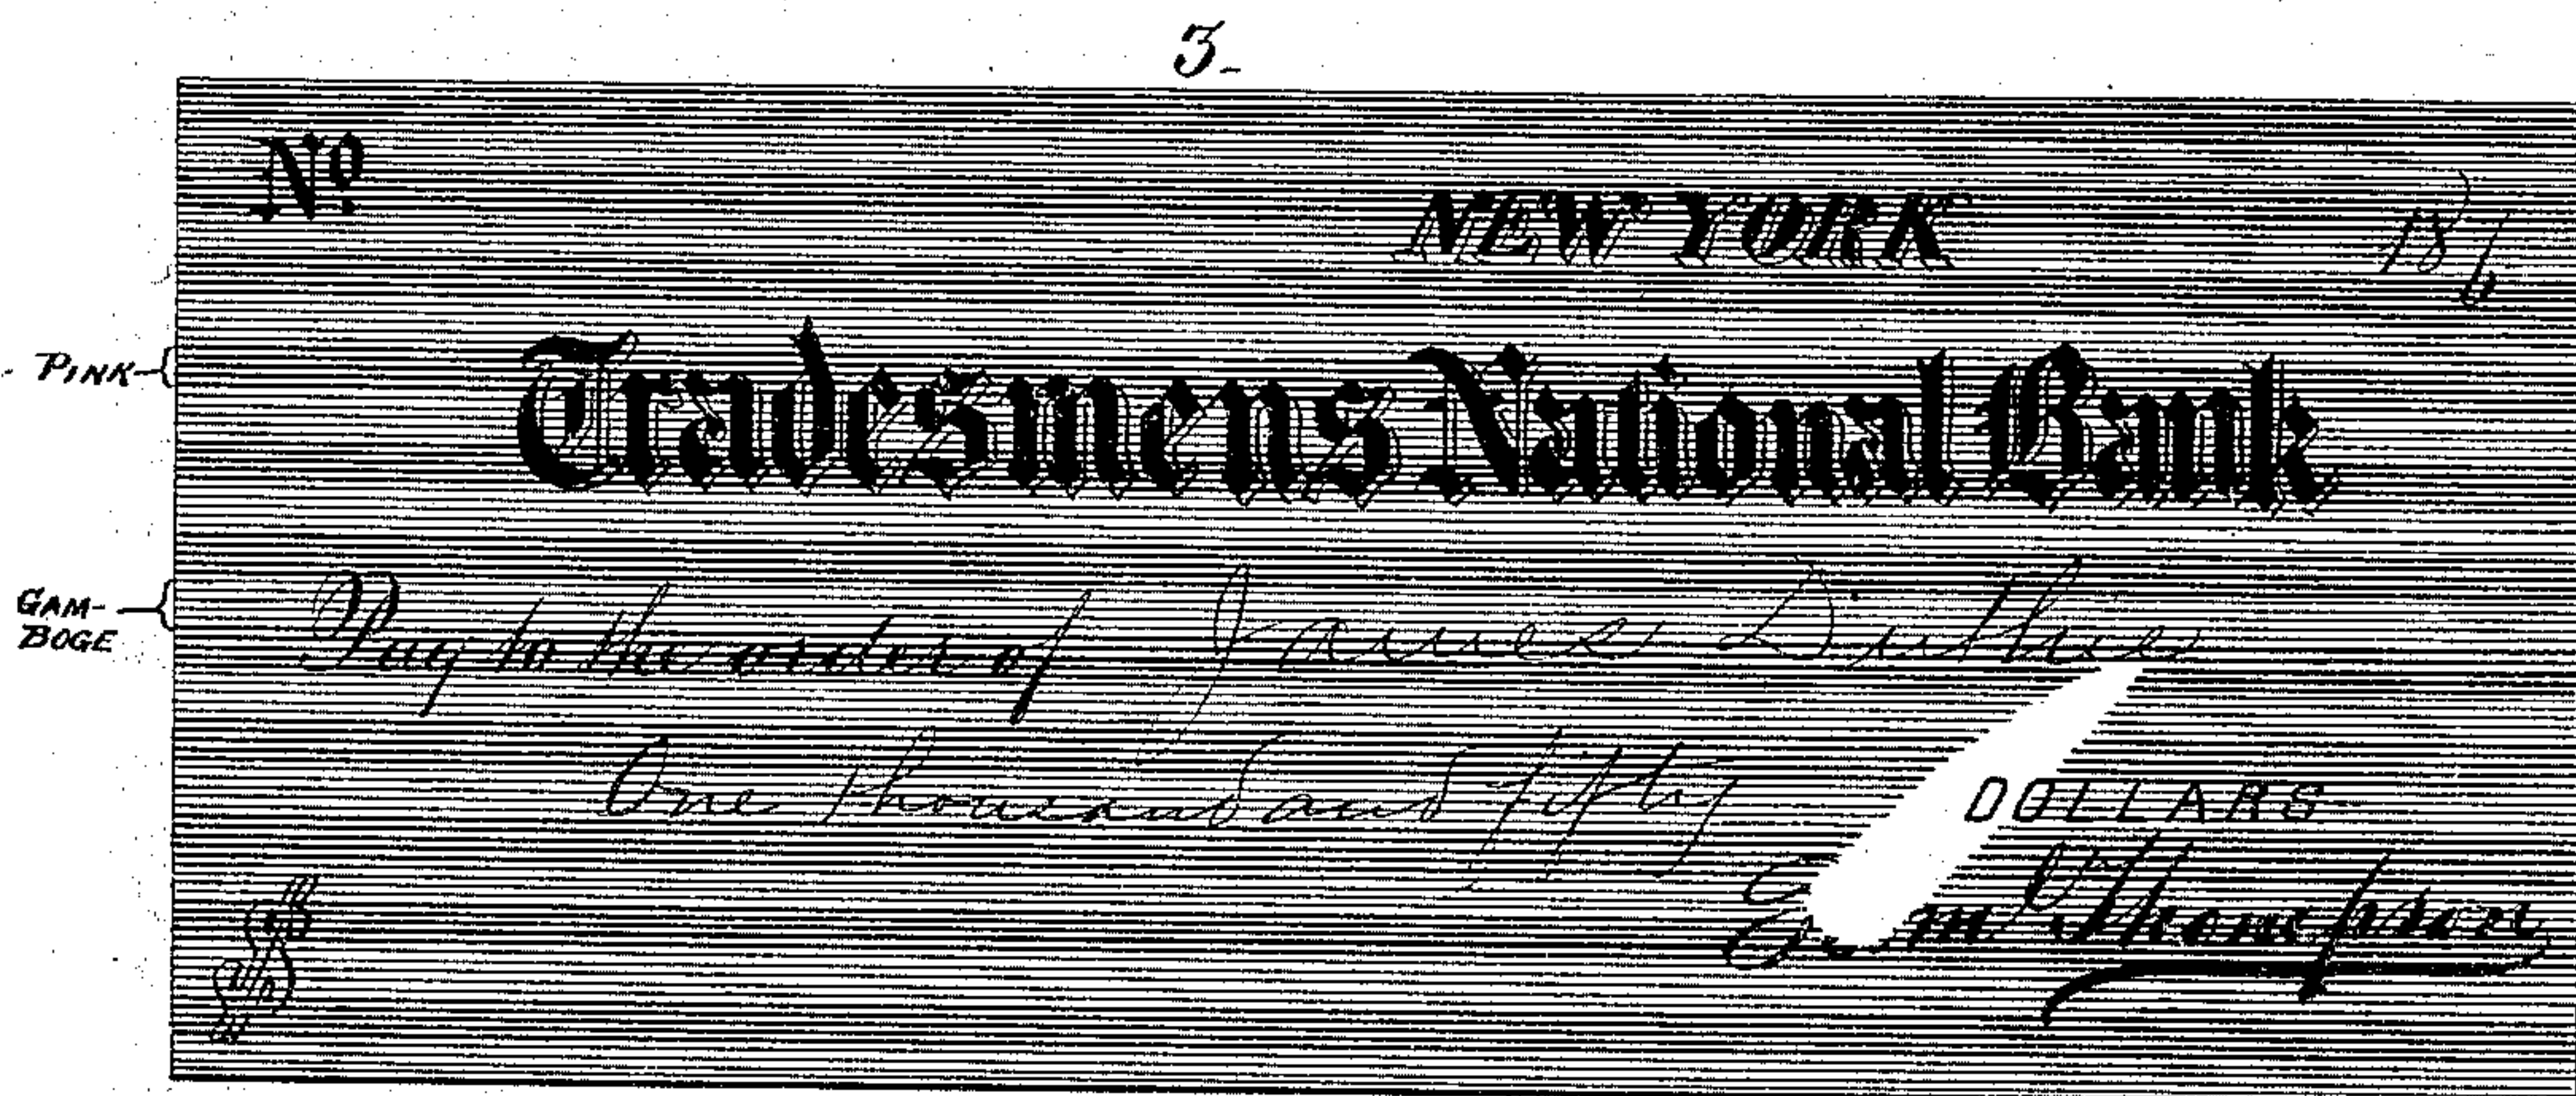 3-
No.
NEW YORK 186
PINK
Tradesmens National Bank
GAM-
BOGE
Pay to the order of James Duthie
One thousand and fifty
DOLLARS
Thompson
$